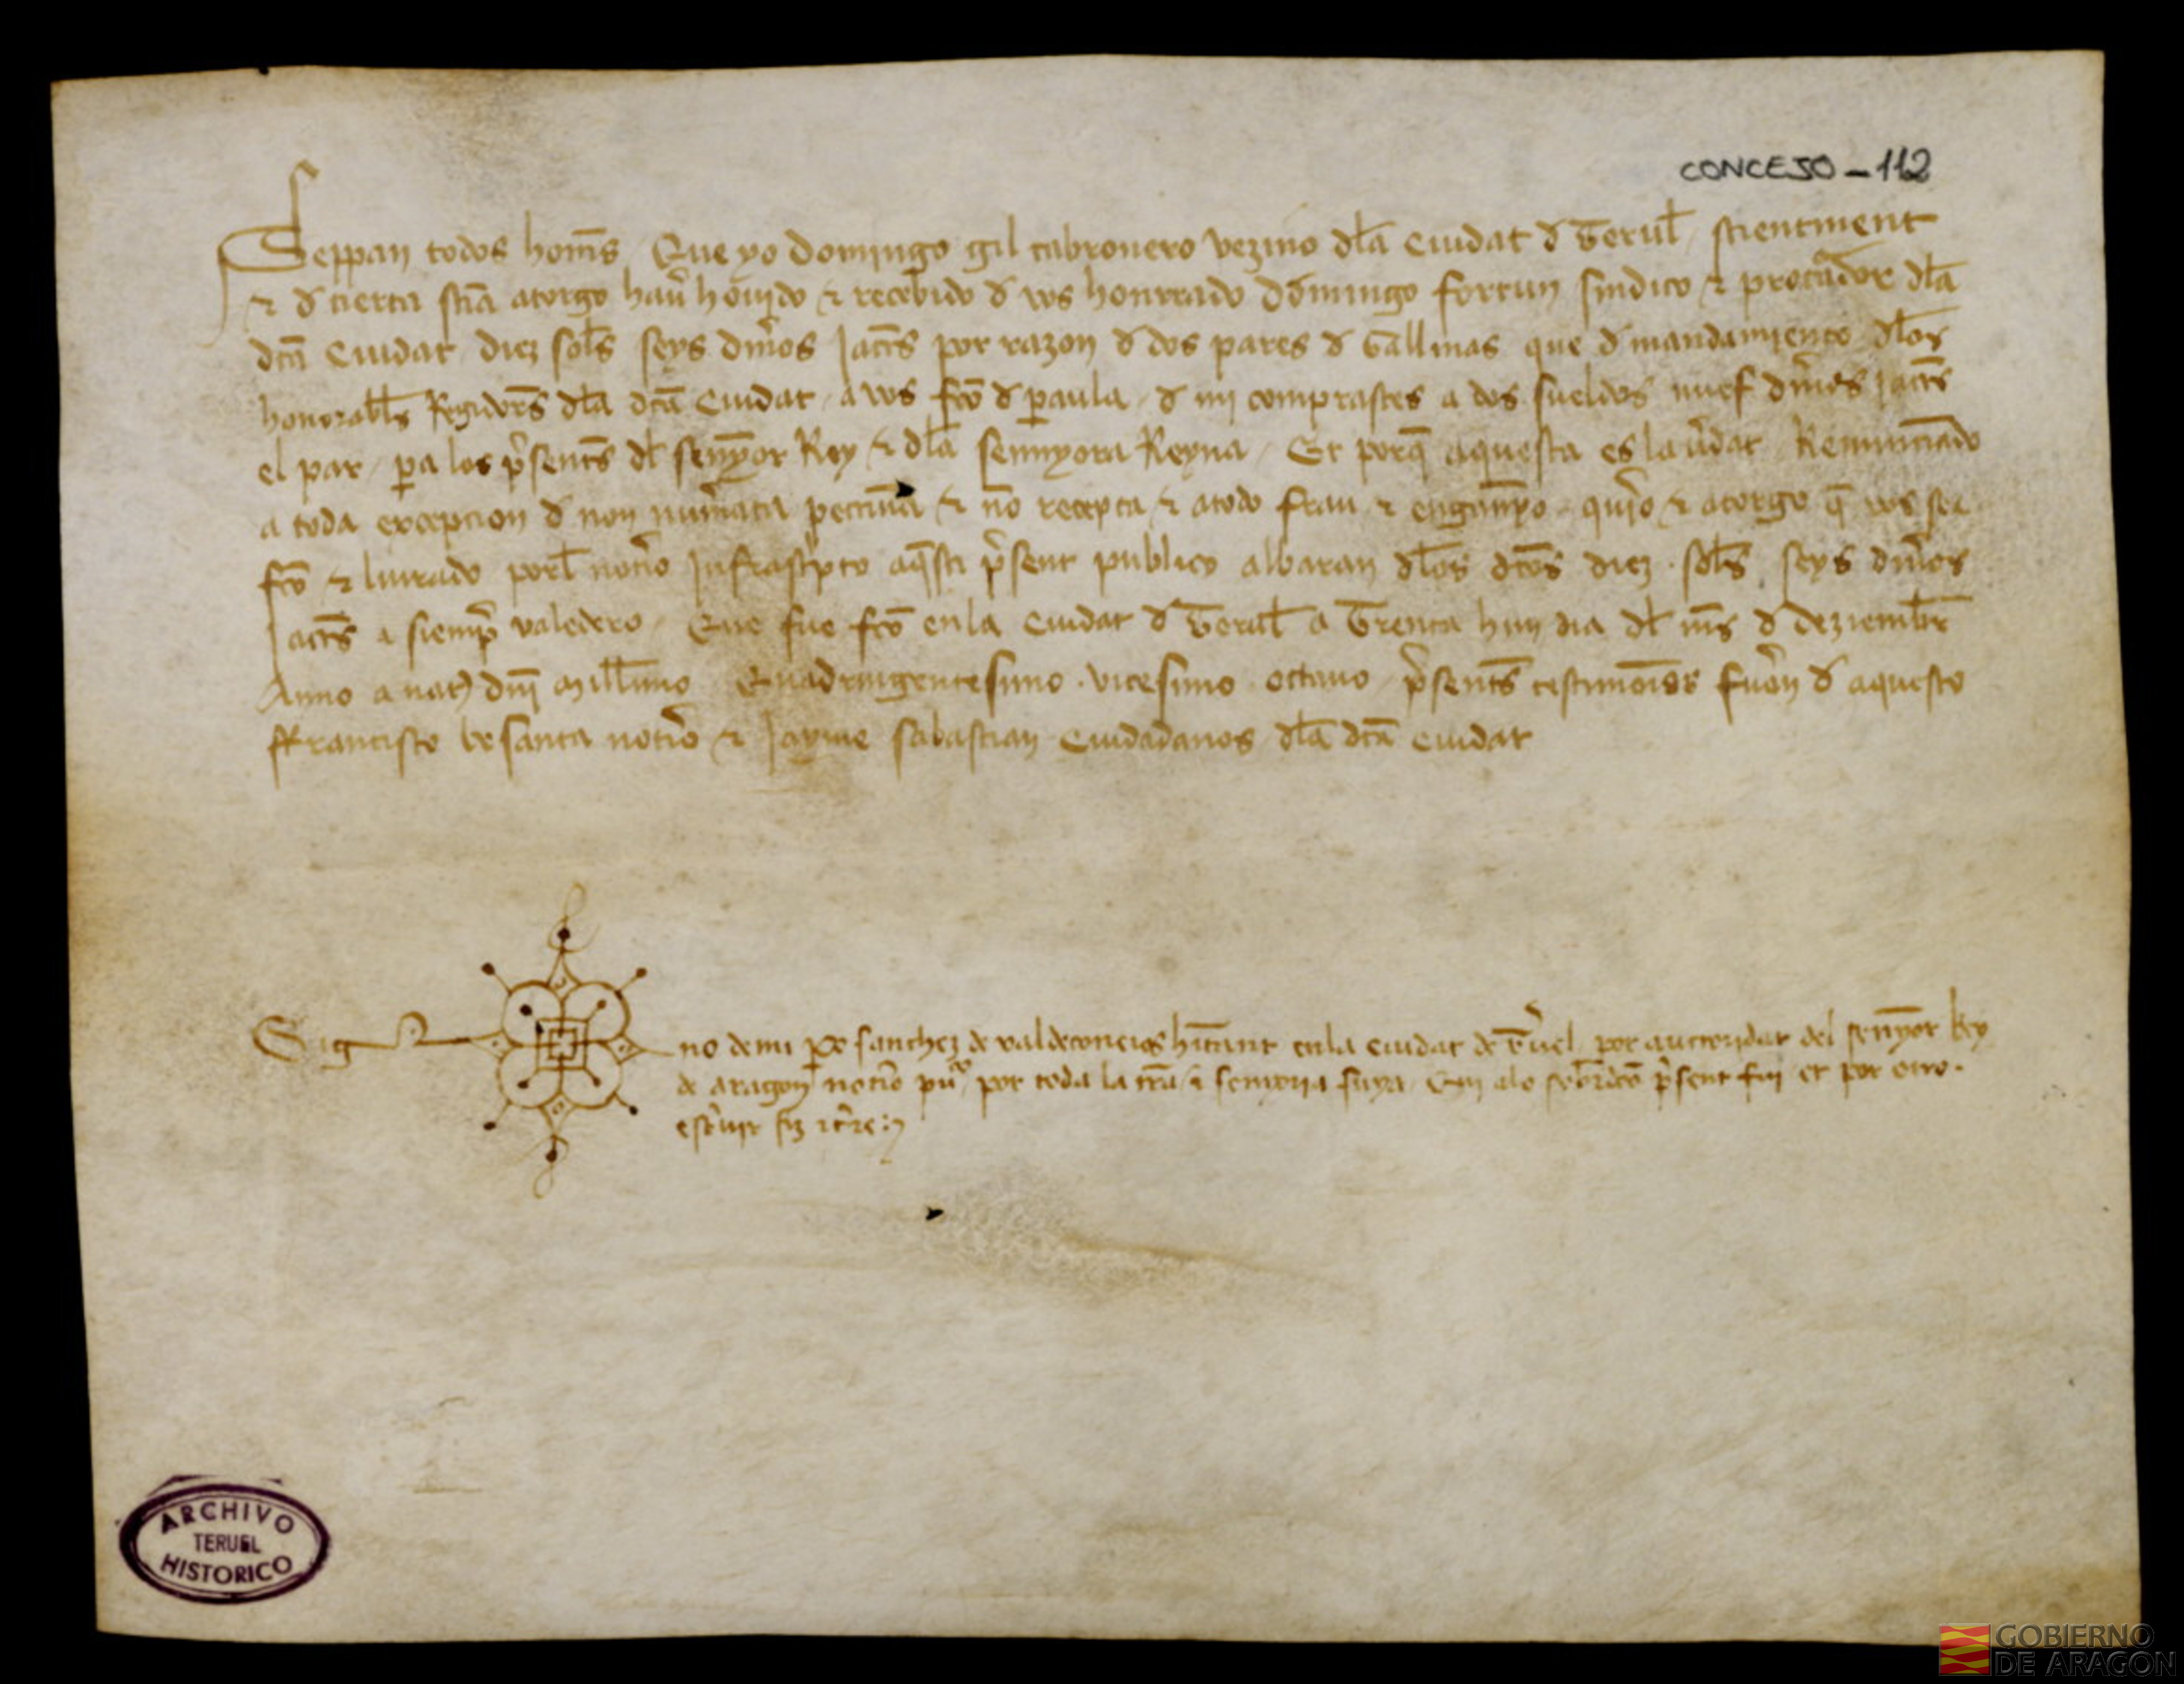 CONCEJO - 112
Seppan todos hom̄s Que yo Domingo gil cabronero vezino dl̄a Ciudat d̄ Terul̄ scientment
⁊ d̄ cierta sciā atorgo hav̄ houido ⁊ recebido d̄ vos honrrado Domingo fortun sindico ⁊ procūador dl̄a
dc̄ā Ciudat diez sol̄s seys din̄os Jacc̄s por razon d̄ dos pares d̄ Gallinas que d̄ mandamiento dl̄os
honorabl̄s Regidor̄s dl̄a dc̄ā Ciudat a vos fc̄o d̄ paraula d̄ mi comprastes a dos sueldos nuef din̄os Jacc̄s
el par pa los p̄sent̄s dl̄ sen̄yor Rey ⁊ dl̄a sennyora Reyna Et porq̄ aquesta es la v̄dat Renunciādo
a toda excepcion d̄ non num̄ata peccunia ⁊ nō recepta ⁊ a todo frau ⁊ engan̄yo quīo ⁊ atorgo q̄ vos sea
fc̄o ⁊ liurado porl̄ notīo Jnfrasc̄pto aq̄sti p̄sent publico albaran dl̄os dc̄os diez sol̄s seys din̄os
Jacc̄s a siemp̄ valedero Que fue fc̄o en la Ciudat d̄ Terul̄ a Trenta hun dia dl̄ m̄s d̄ deziembr̄
Anno a nat̄ dn̄i Mill̄imo Quadringentesimo vicesimo octauo p̄sent̄s testimoīos fuōn d̄ aquesto
ffrancisco besanta notīo ⁊ Jayme sabastian Ciudadanos dl̄a dc̄ā Ciudat
Sig no de mi p̄o sanchez de valdeconeios hītant en la Ciudat de T̄uel por auctoridat del sen̄yor Rey
de aragon notīo pūco por toda la tr̄a ⁊ senyoria suya Qui a lo sobrēdc̄o p̄sent fui et por otro
esc̄uir fiz
ARCHIVO
TERUEL
HISTORICO
GOBIERNO
DE ARAGON